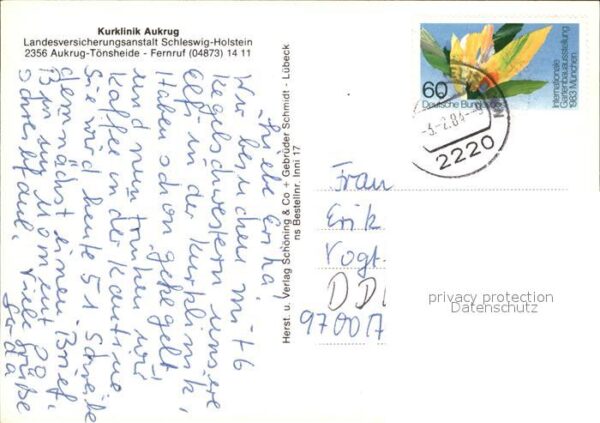 Kurklinik Aukrug
Landesversicherungsanstalt Schleswig-Holstein
2356 Aukrug-Tönsheide - Fernruf (04873) 14 11
Liebe Erika,
Wir besuchen mit 6
Kegelschwestern unsere
elf in der Kurklinik,
Haben schon gekegelt
und nun trinken wir
Kaffee in der Kantine
Sie wird heute 51 Schreibe
demnächst einen Brief.
Bin im Moment so
schreibfaul. Viele Grüße
Gerda
Herst. u. Verlag Schöning & Co + Gebrüder Schmidt - Lübeck
ns Bestellnr. Inni 17
60
Deutsche Bundespost
Internationale
Gartenbauausstellung
1983 München
-3.-2.84-
2220
Frau
Erik
Vogt
DD
9700 17
privacy protection
Datenschutz